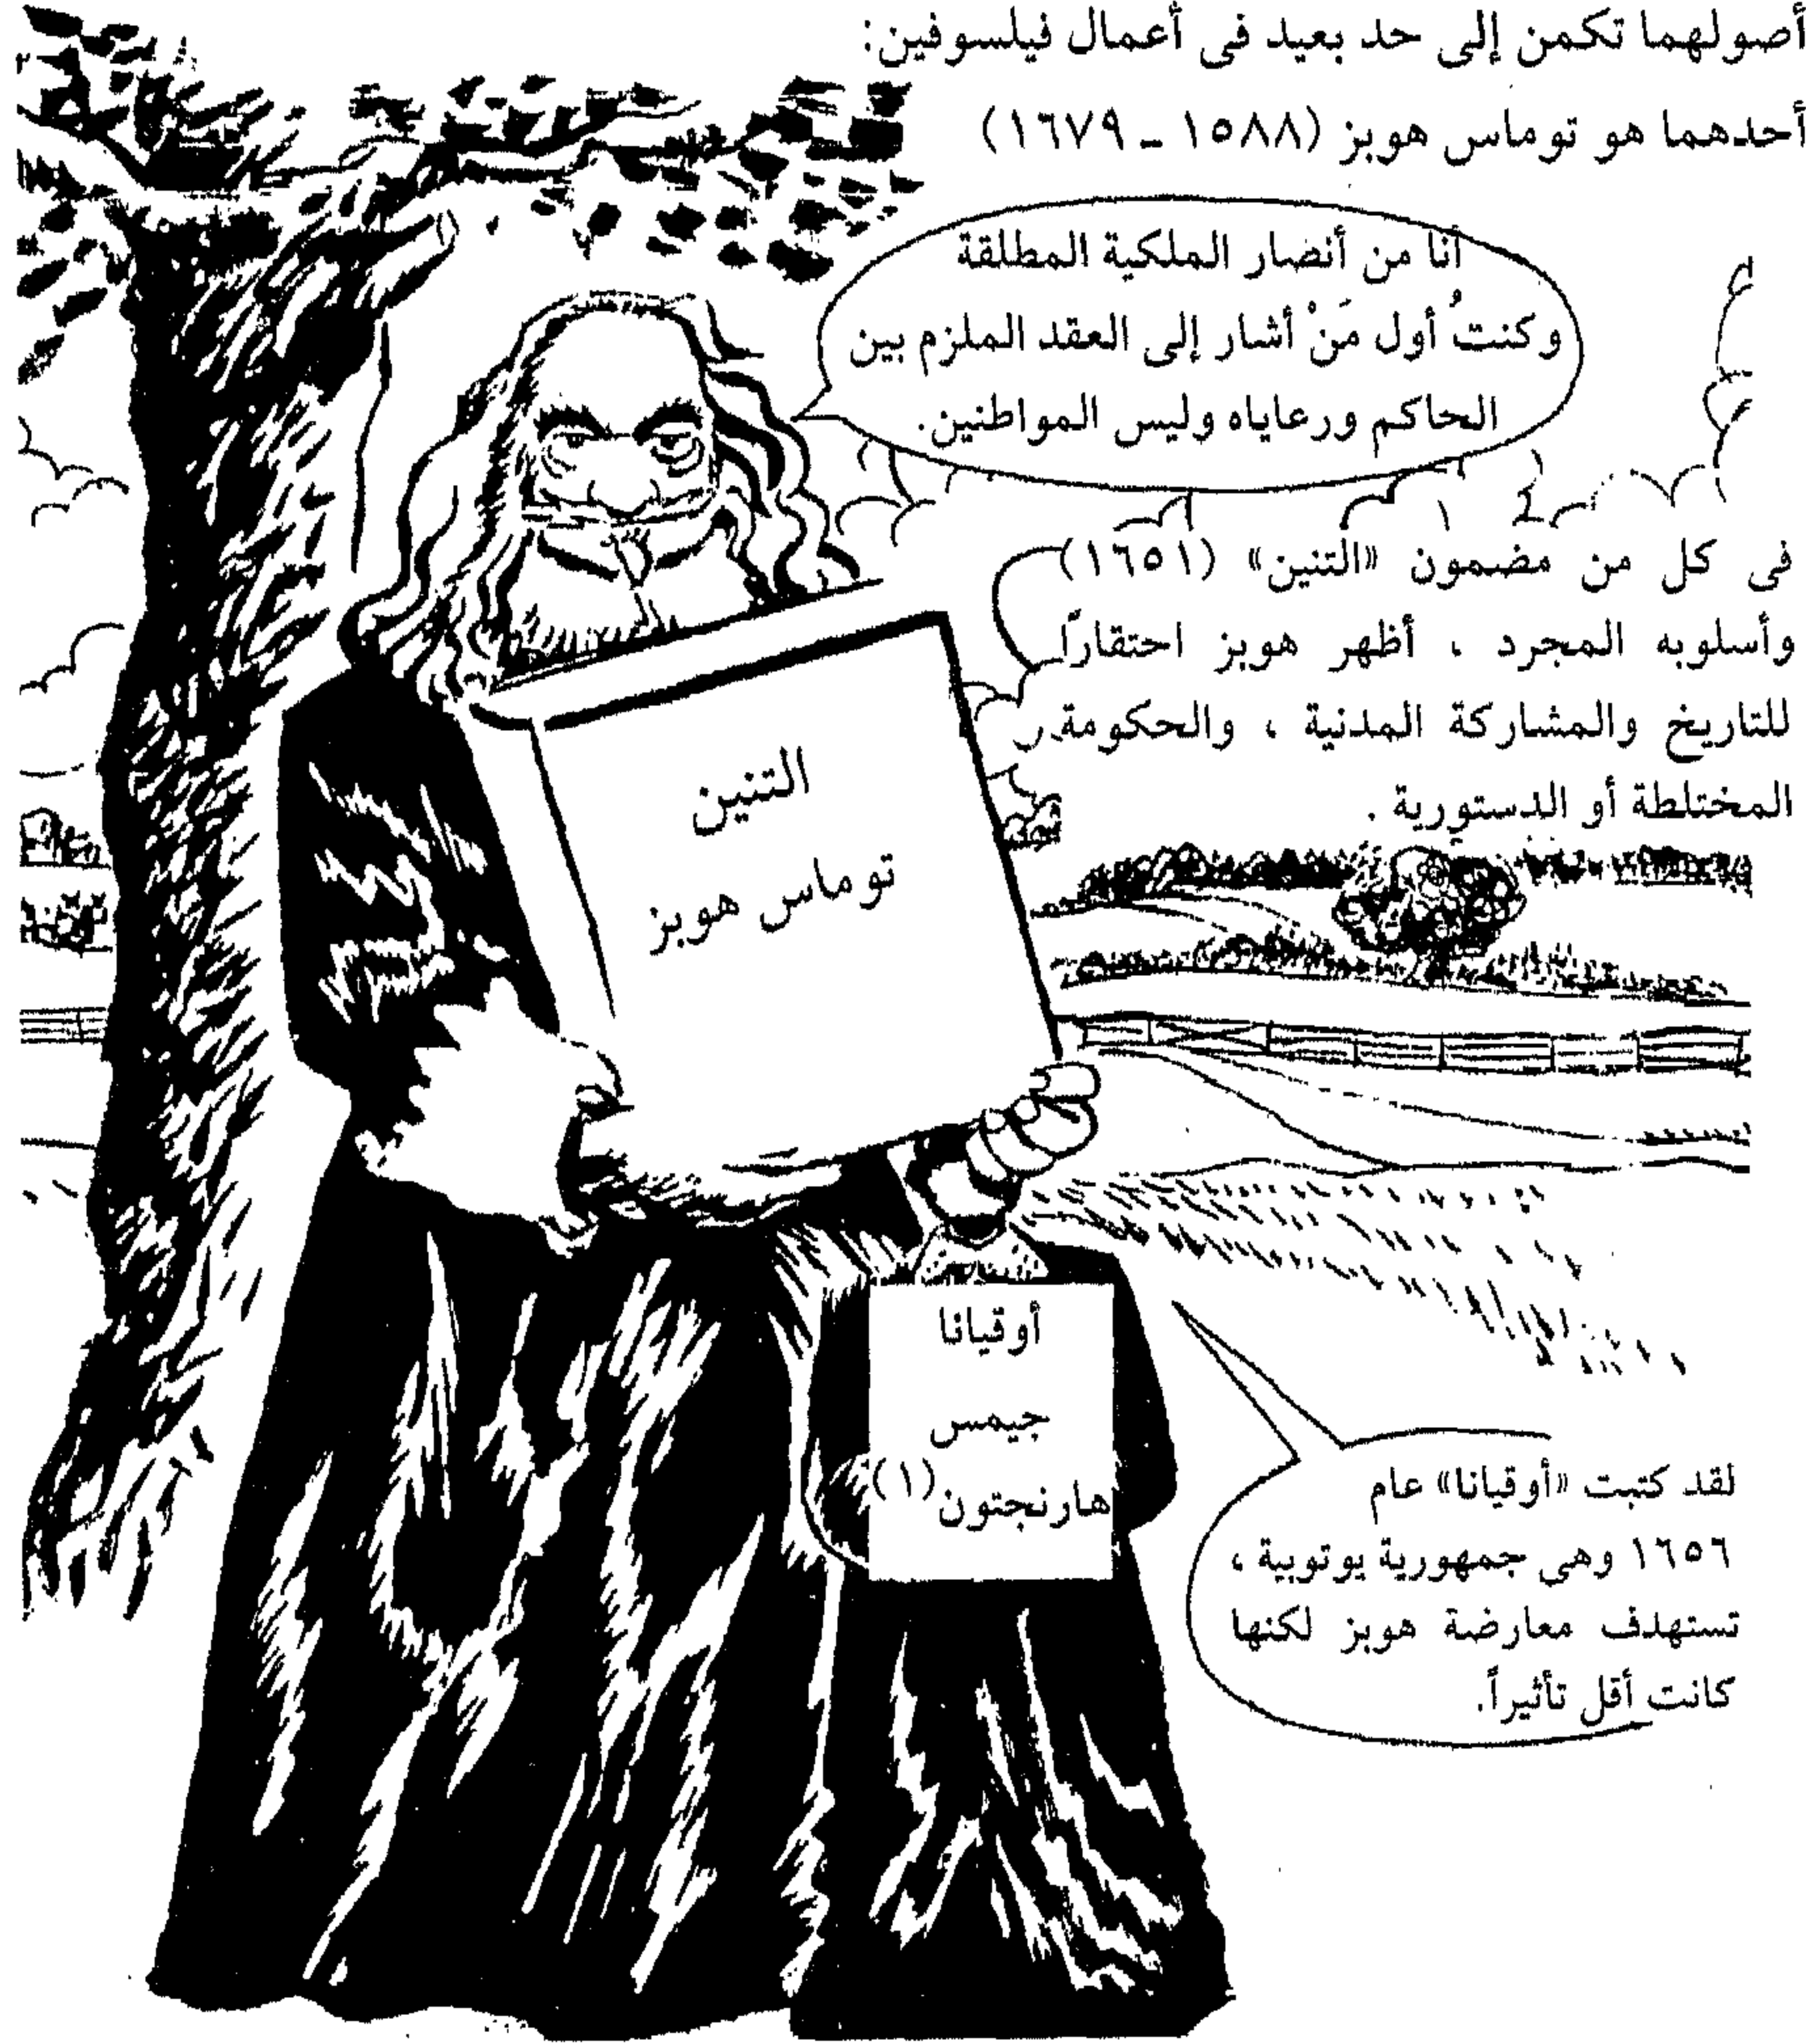 أصولهما تكمن إلى حد بعيد فى أعمال فيلسوفين:
أحدهما هو توماس هوبز (١٥٨٨ ـ ١٦٧٩)
أنا من أنصار الملكية المطلقة
وكنتُ أول مَنْ أشار إلى العقد الملزم بين
الحاكم ورعاياه وليس المواطنين.
فى كل من مضمون «التنين» (١٦٥١)
وأسلوبه المجرد ، أظهر هوبز احتقارًا
للتاريخ والمشاركة المدنية ، والحكومة
المختلطة أو الدستورية .
التنين
توماس هوبز
أوقيانا
جيمس
هارنجتون(١)
لقد كتبت «أوقيانا» عام
١٦٥٦ وهى جمهورية يوتوبية ،
تستهدف معارضة هوبز لكنها
كانت أقل تأثيراً.